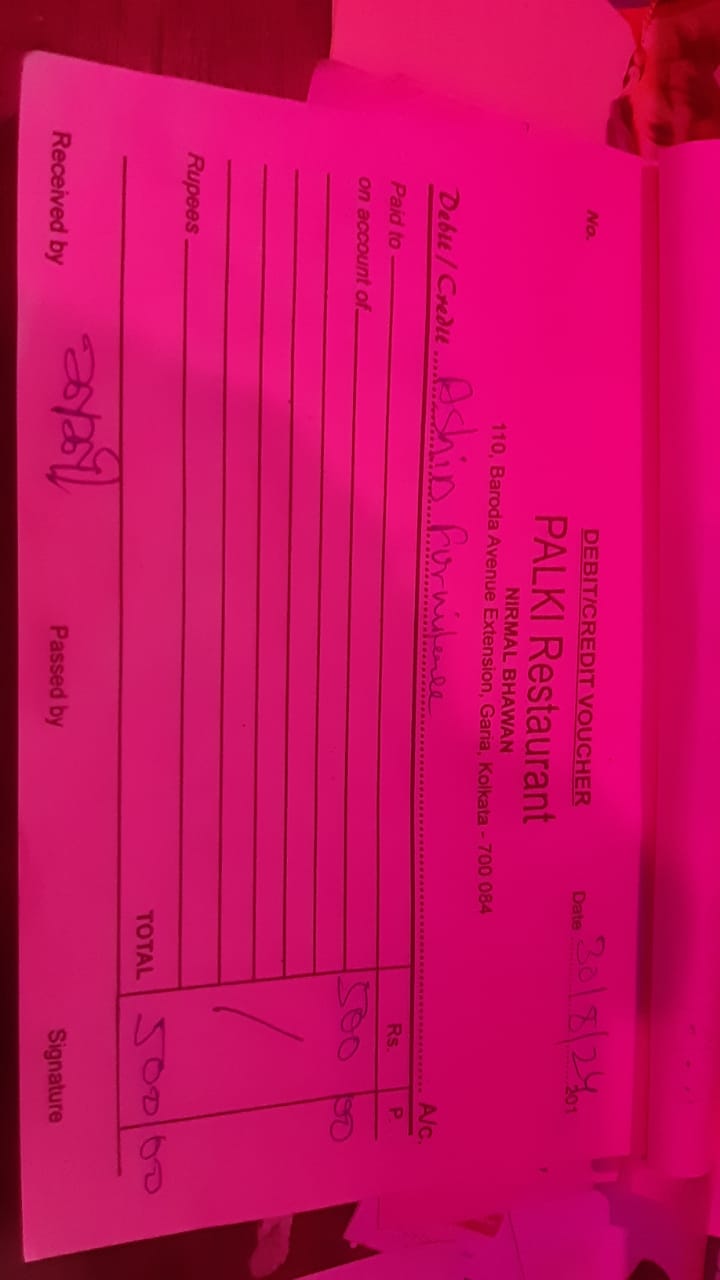 DEBIT/CREDIT VOUCHER
No.
Date 30/8/24 201
PALKI Restaurant
NIRMAL BHAWAN
110, Baroda Avenue Extension, Garia, Kolkata - 700 084
Debit / Credit Ashin Furniture A/c.
Paid to Rs. P.
on account of 500 00
Rupees
TOTAL 500 00
Received by Passed by Signature